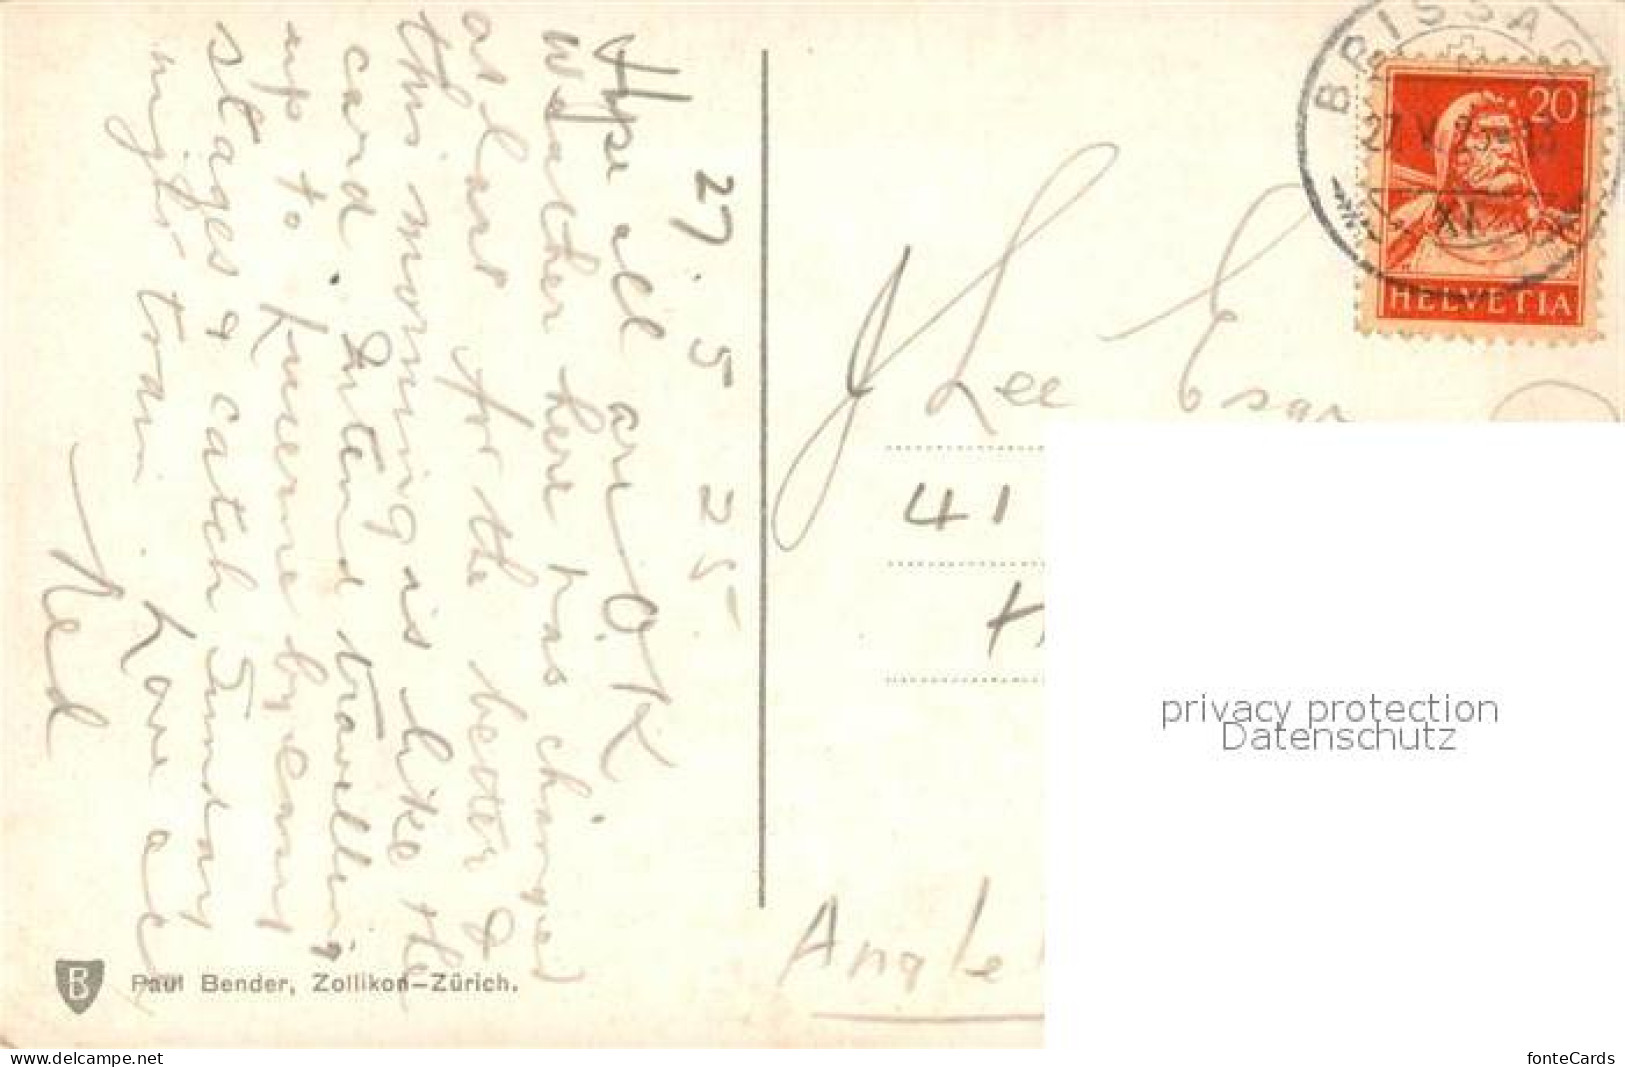 27.5.25
Hope all are O.K.
Weather here has changed
at last for the better &
this morning is like the
card. Intend travelling
up to Lucerne by easy
stages & catch Sunday
night train. Love all
Ned
Paul Bender, Zollikon-Zürich.
BRISSAGO
27.V.25-13
XI
20
HELVETIA
Lee
41
privacy protection
Datenschutz
www.delcampe.net
fonteCards